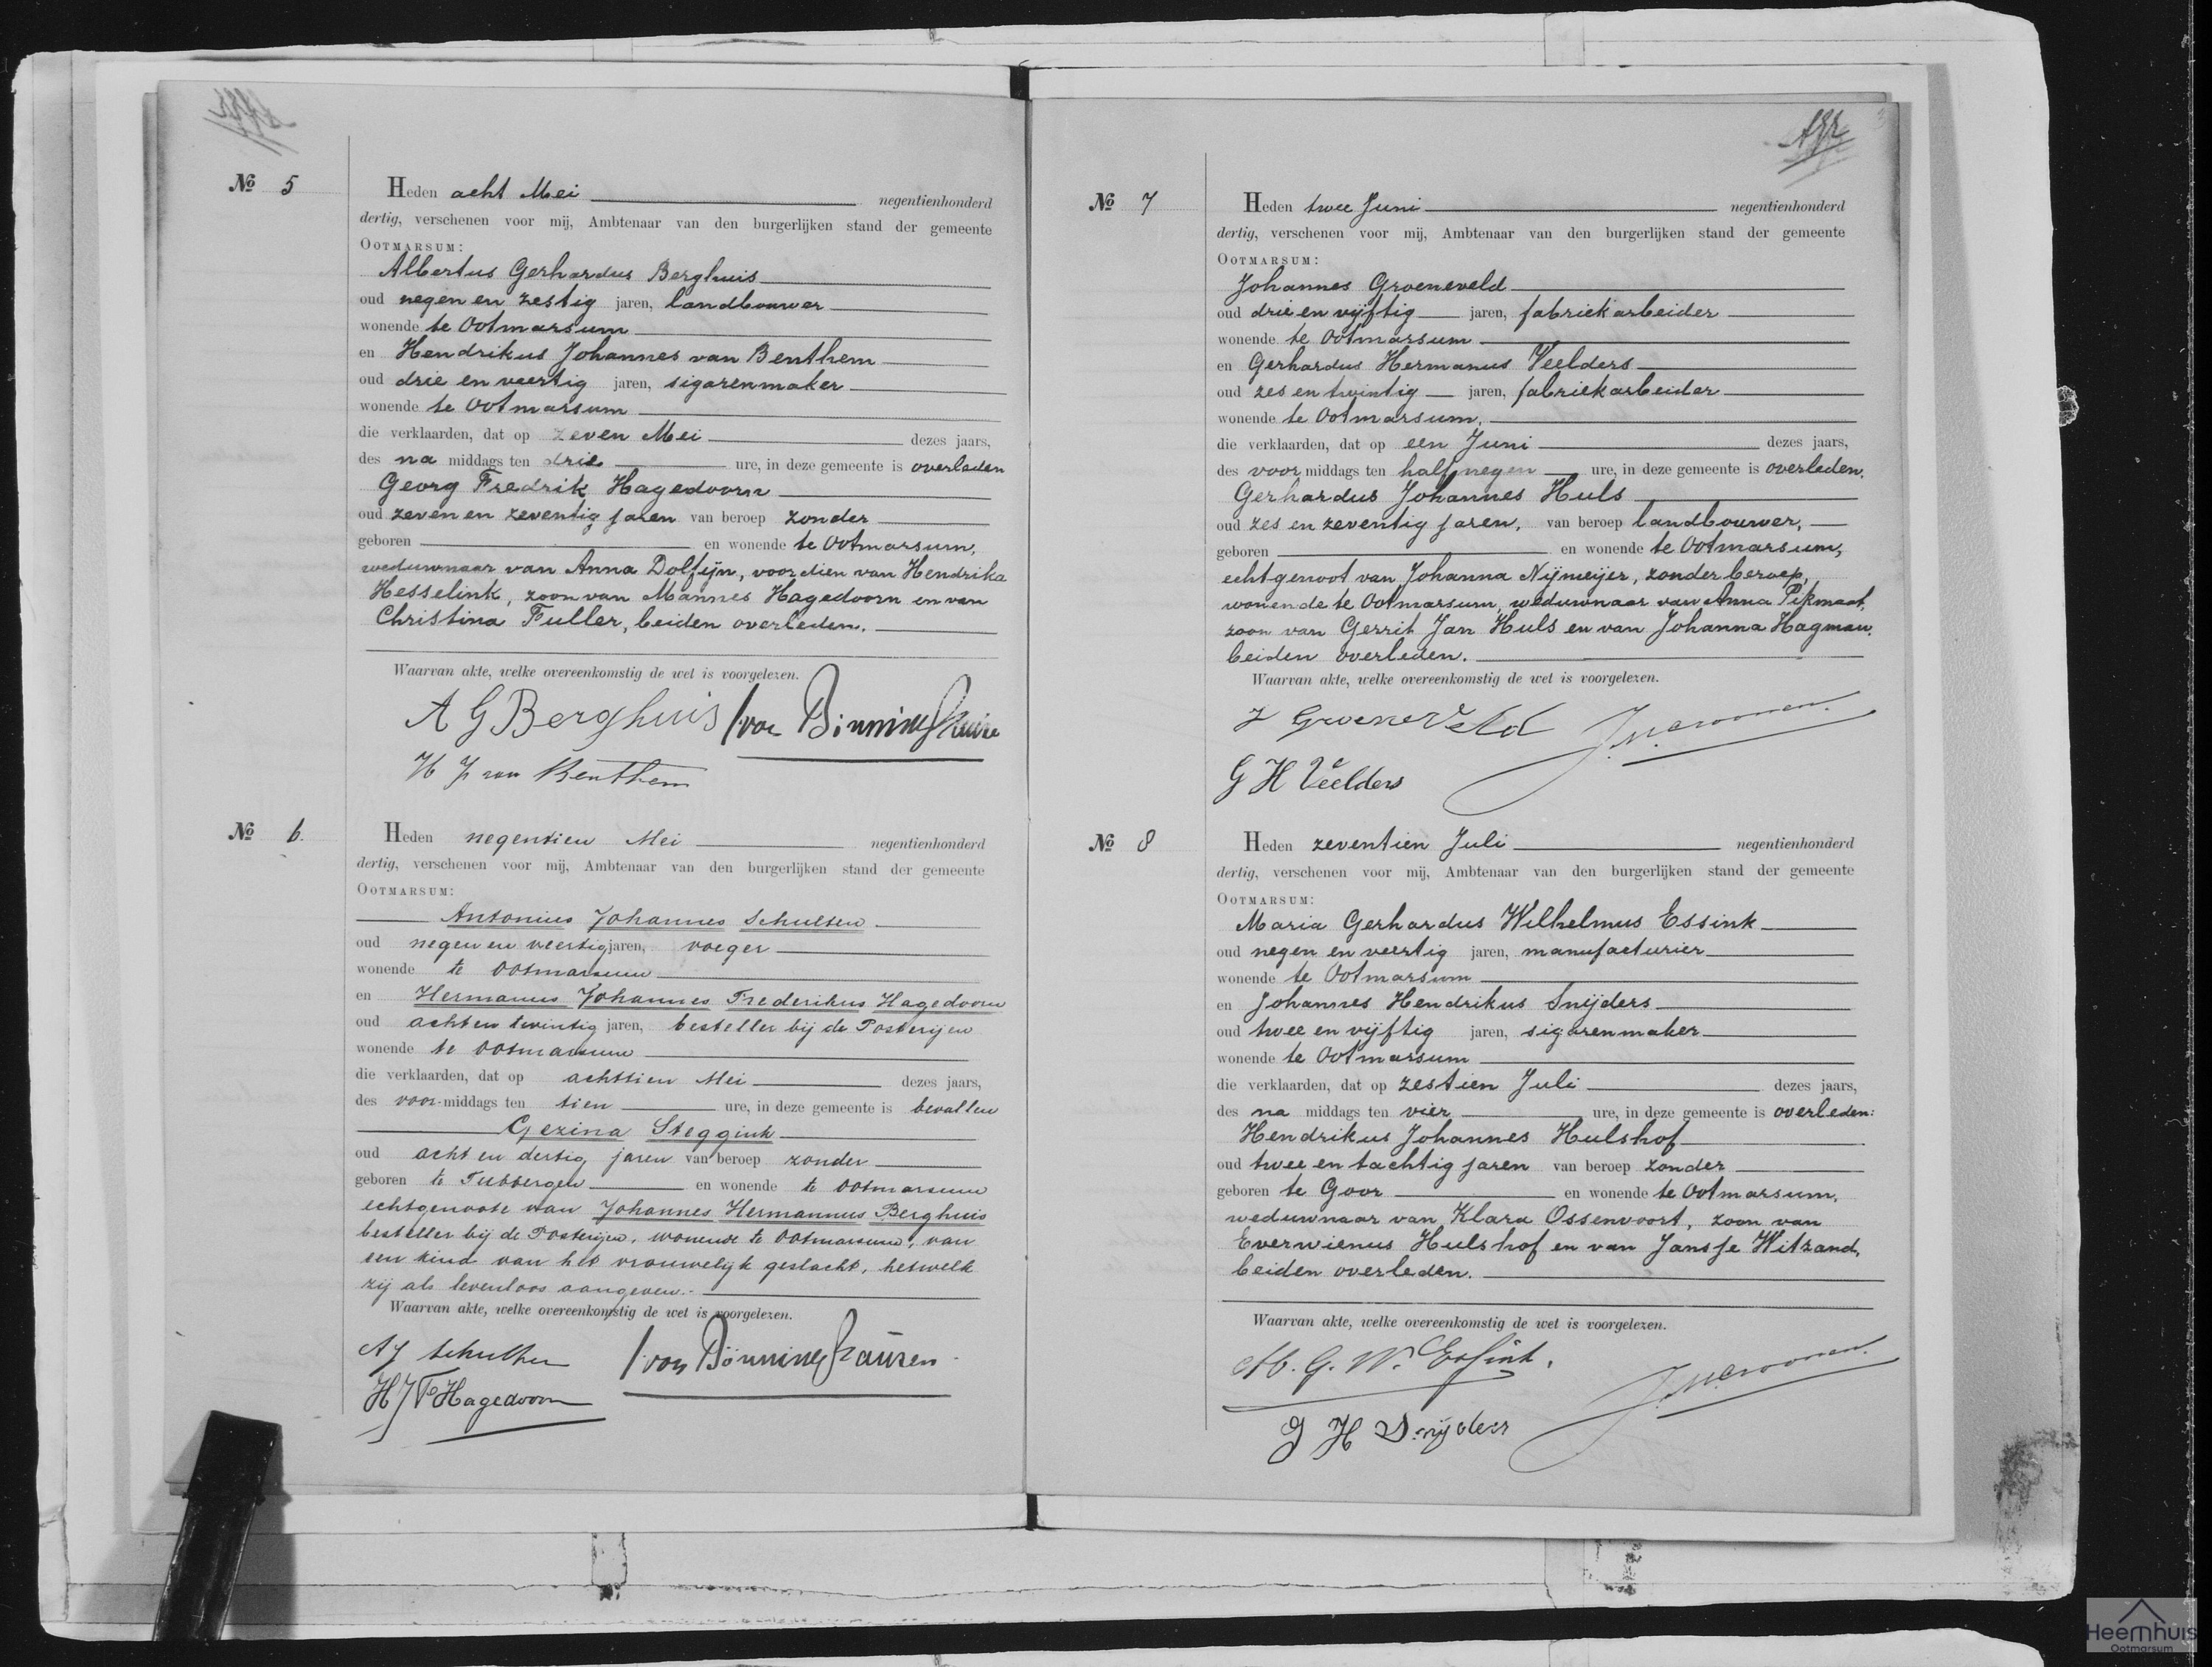 No 5
Heden acht Mei negentienhonderd
dertig, verschenen voor mij, Ambtenaar van den burgerlijken stand der gemeente
OOTMARSUM:
Albertus Gerhardus Berghuis
oud negen en zestig jaren, landbouwer
wonende te Ootmarsum
en Hendrikus Johannes van Benthem
oud drie en veertig jaren, sigarenmaker
wonende te Ootmarsum
die verklaarden, dat op zeven Mei dezes jaars,
des na middags ten drie ure, in deze gemeente is overleden
Georg Fredrik Hagedoorn
oud zeven en zeventig jaren van beroep zonder
geboren en wonende te Ootmarsum,
weduwnaar van Anna Dolfijn, voordien van Hendrika
Hesselink, zoon van Mannes Hagedoorn en van
Christina Fuller, beiden overleden.
Waarvan akte, welke overeenkomstig de wet is voorgelezen.
A G Berghuis von Bönninghausen
H J van Benthem
No 6.
Heden negentien Mei negentienhonderd
dertig, verschenen voor mij, Ambtenaar van den burgerlijken stand der gemeente
OOTMARSUM:
Antonius Johannes Schulten
oud negen en veertig jaren, voeger
wonende te Ootmarsum
en Hermanus Johannes Frederikus Hagedoorn
oud acht en twintig jaren, besteller bij de Posterijen
wonende te Ootmarsum
die verklaarden, dat op achttien Mei dezes jaars,
des voor-middags ten tien ure, in deze gemeente is bevallen
Gezina Steggink
oud acht en dertig jaren van beroep zonder
geboren te Tubbergen en wonende te Ootmarsum
echtgenoote van Johannes Hermannus Berghuis
besteller bij de Posterijen, wonende te Ootmarsum, van
een kind van het vrouwelijk geslacht, hetwelk
zij als levenloos aangeven.
Waarvan akte, welke overeenkomstig de wet is voorgelezen.
A J Schulten von Bönninghausen
H J F Hagedoorn
No 7
Heden twee Juni negentienhonderd
dertig, verschenen voor mij, Ambtenaar van den burgerlijken stand der gemeente
OOTMARSUM:
Johannes Groeneveld
oud drie en vijftig jaren, fabriekarbeider
wonende te Ootmarsum
en Gerhardus Hermanus Veelders
oud zes en twintig jaren, fabriekarbeider
wonende te Ootmarsum,
die verklaarden, dat op een Juni dezes jaars,
des voor middags ten half negen ure, in deze gemeente is overleden,
Gerhardus Johannes Huls
oud zes en zeventig jaren, van beroep landbouwer,
geboren en wonende te Ootmarsum,
echtgenoot van Johanna Nijmeijer, zonder beroep,
wonende te Ootmarsum, weduwnaar van Anna Pikmaat,
zoon van Gerrit Jan Huls en van Johanna Hagman,
beiden overleden.
Waarvan akte, welke overeenkomstig de wet is voorgelezen.
J Groeneveld
G H Veelders
No 8
Heden zeventien Juli negentienhonderd
dertig, verschenen voor mij, Ambtenaar van den burgerlijken stand der gemeente
OOTMARSUM:
Maria Gerhardus Wilhelmus Essink
oud negen en veertig jaren, manufacturier
wonende te Ootmarsum
en Johannes Hendrikus Snijders
oud twee en vijftig jaren, sigarenmaker
wonende te Ootmarsum
die verklaarden, dat op zestien Juli dezes jaars,
des na middags ten vier ure, in deze gemeente is overleden:
Hendrikus Johannes Hulshof
oud twee en tachtig jaren van beroep zonder
geboren te Goor en wonende te Ootmarsum,
weduwnaar van Klara Ossenvoort, zoon van
Everwienus Hulshof en van Jansje Witzand,
beiden overleden.
Waarvan akte, welke overeenkomstig de wet is voorgelezen.
M. G. W. Essink.
J H Snijders
Heemhuis
Ootmarsum